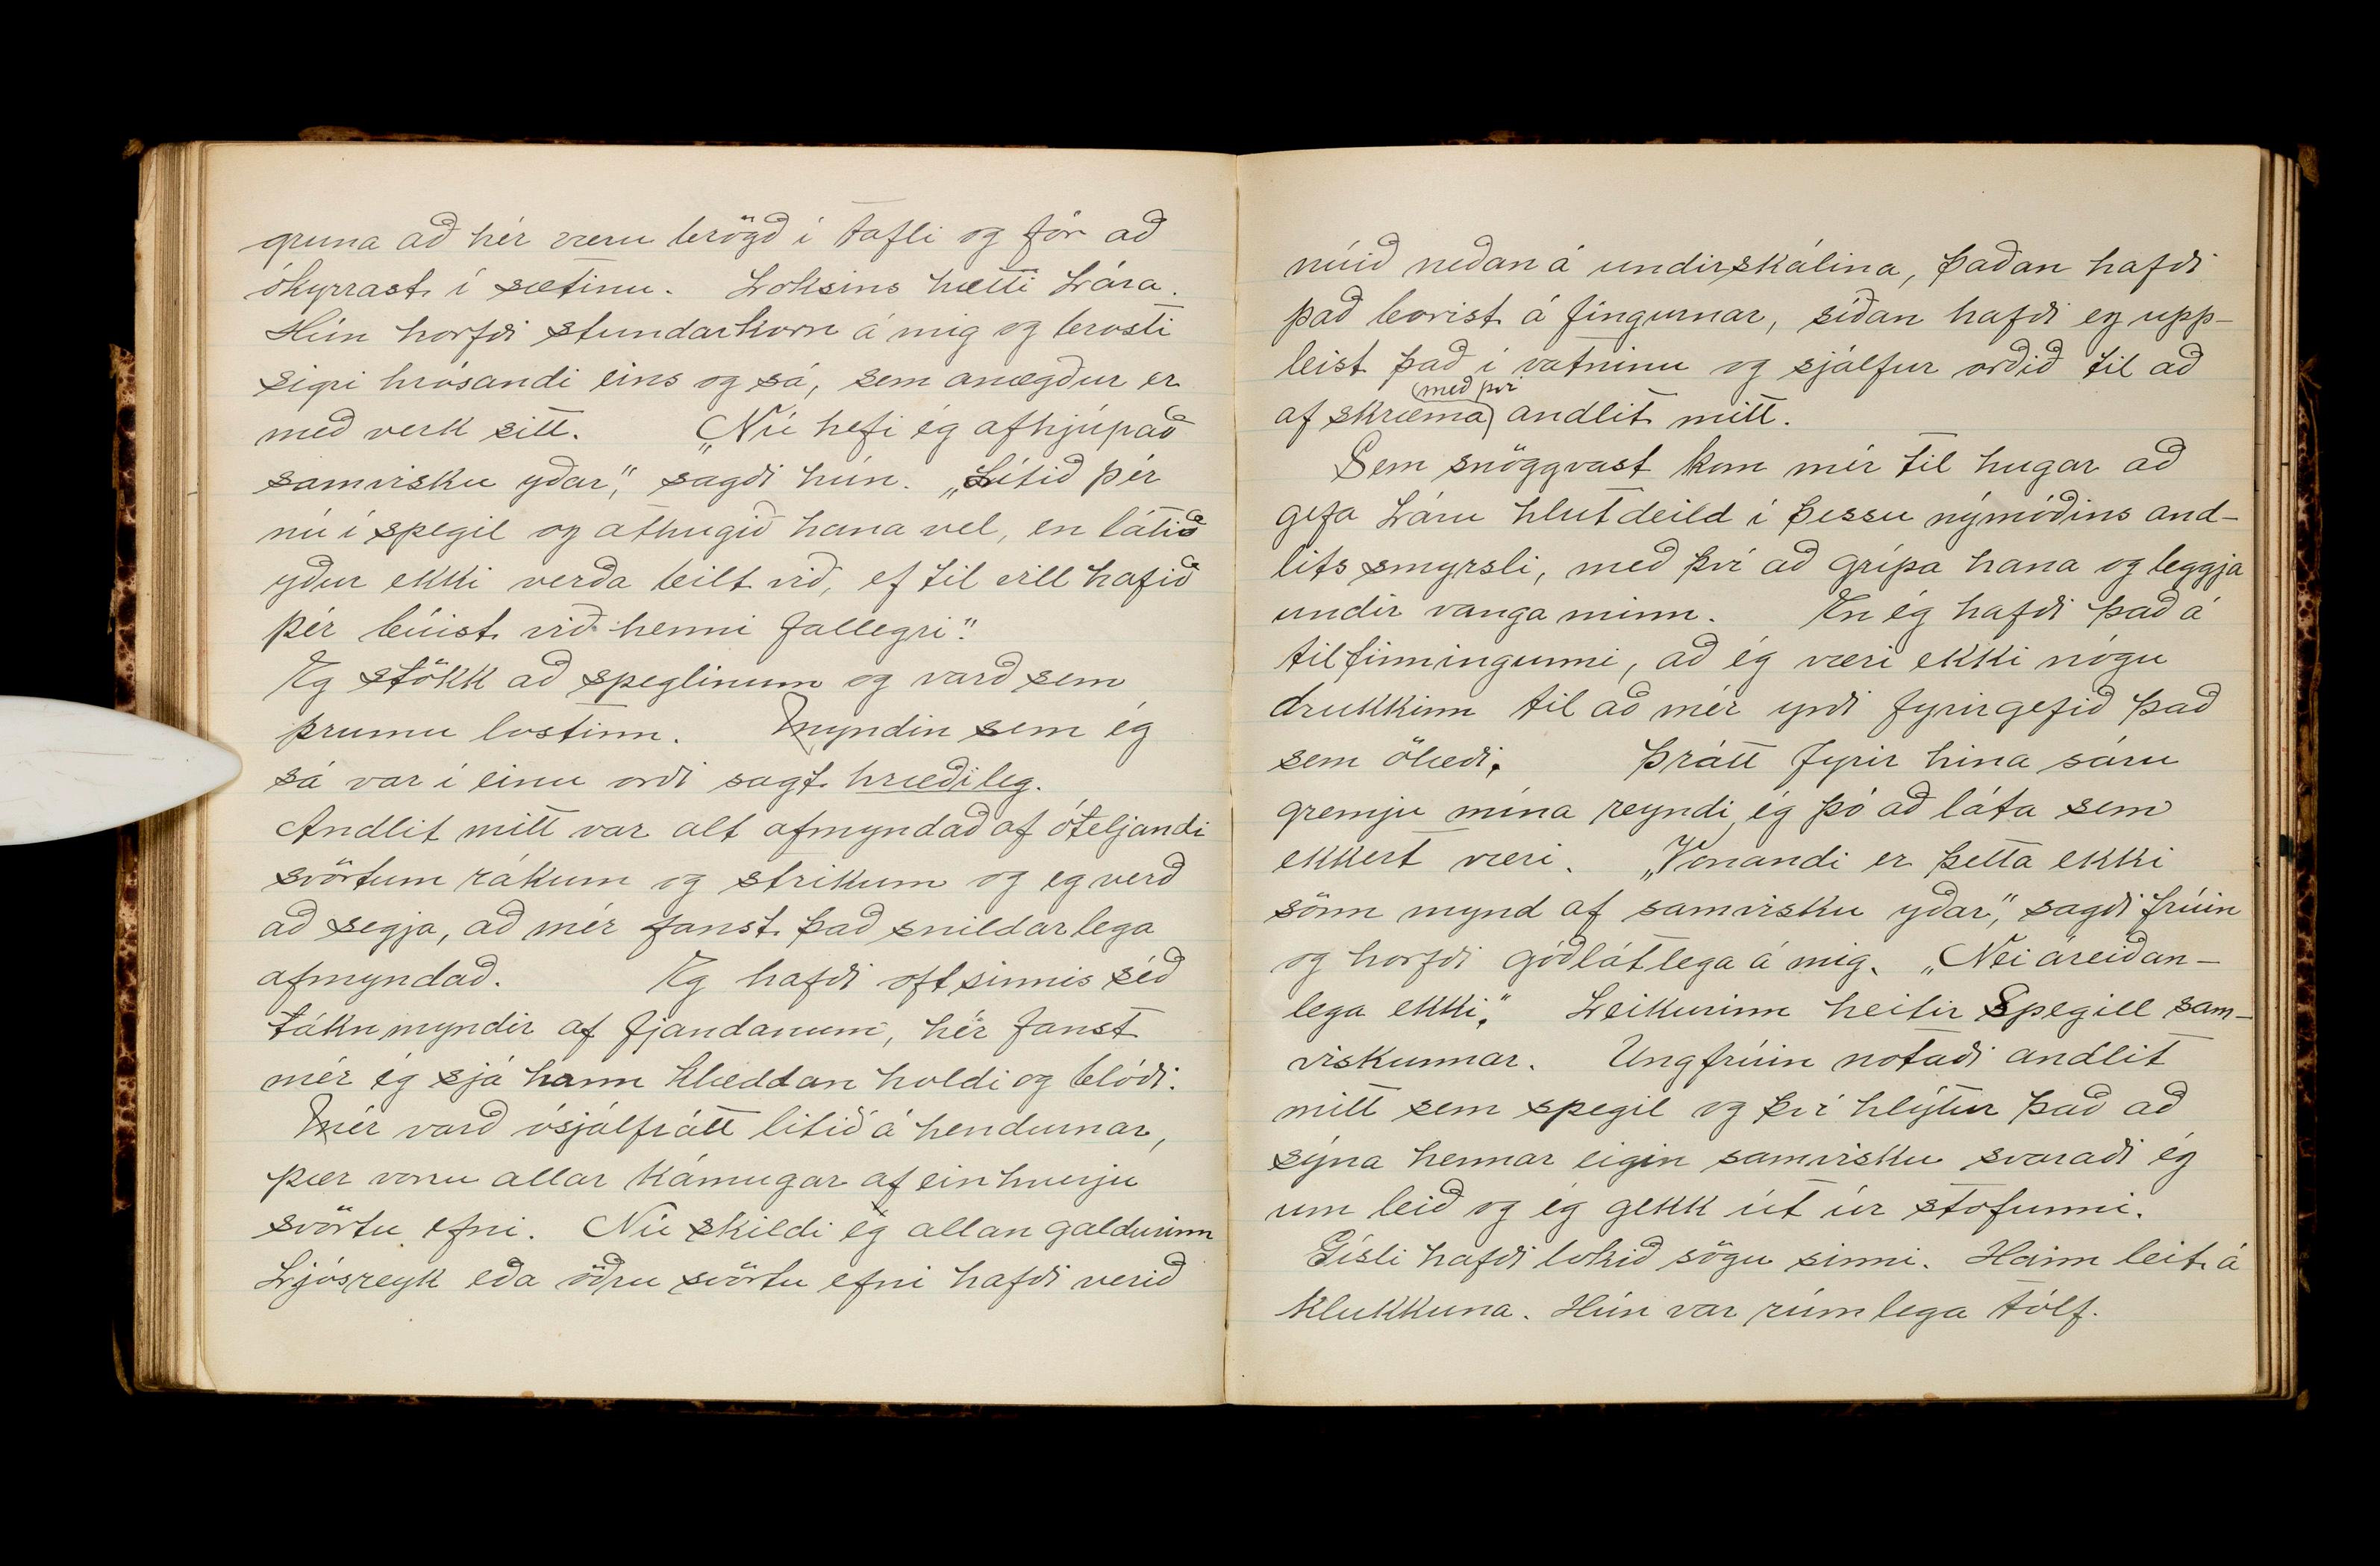 gruna að hér væru brögð í tafli og fór að
ókyrrast í sætinu. Loksins hætti Lára.
Hún horfði stundarkorn á mig og brosti
sigri hrósandi eins og sá, sem anægður er
með verk sitt. „Nú hefi ég afhjúpað
samvisku yðar“, sagði hún. „Lítið þér
nú í spegil og athugið hana vel, en látið
yður ekki verða bilt við, ef til vill hafið
þér búist við henni fallegri“.
Eg stökk að speglinum og varð sem
þrumu lostinn. Myndin sem ég
sá var í einu orði sagt hræðileg.
Andlit mitt var alt afmyndað af óteljandi
svörtum rákum og strikum og eg verð
að segja, að mér fanst það snildarlega
afmyndað. Eg hafði oftsinnis séð
táknmyndir af fjandanum, hér fanst
mér ég sjá hann klæddan holdi og blóði.
Mér varð ósjálfrátt litið á hendurnar,
þær voru allar kámugar af einhverju
svörtu efni. Nú skildi ég allan galdurinn
Ljósreyk eða öðru svörtu efni hafði verið
núið neðan á undirskálina, þaðan hafði
það borist á fingurnar, síðan hafði eg upp-
leist það í vatninu og sjálfur orðið til að
af skræma (með því) andlit mitt.
Sem snöggvast kom mér til hugar að
gefa Láru hlutdeild í þessu nýmóðins and-
lits smyrsli, með því að grípa hana og leggja
undir vanga minn. En ég hafði það á
tilfinningunni, að ég væri ekki nógu
drukkinn til að mér yrði fyrirgefið það
sem ölæði. Þrátt fyrir hina sáru
gremju mína reyndi ég þó að láta sem
ekkert væri. „Vonandi er þetta ekki
sönn mynd af samvisku yðar“, sagði frúin
og horfði góðlátlega á mig. „Nei áreiðan-
lega ekki“. Leikurinn heitir Spegill sam-
viskunnar. Ungfrúin notaði andlit
mitt sem spegil og því hlýtur það að
sýna hennar eigin samvisku svaraði ég
um leið og ég gekk út úr stofunni.
Gísli hafði lokið sögu sinni. Hann leit á
klukkuna. Hún var rúmlega tólf.